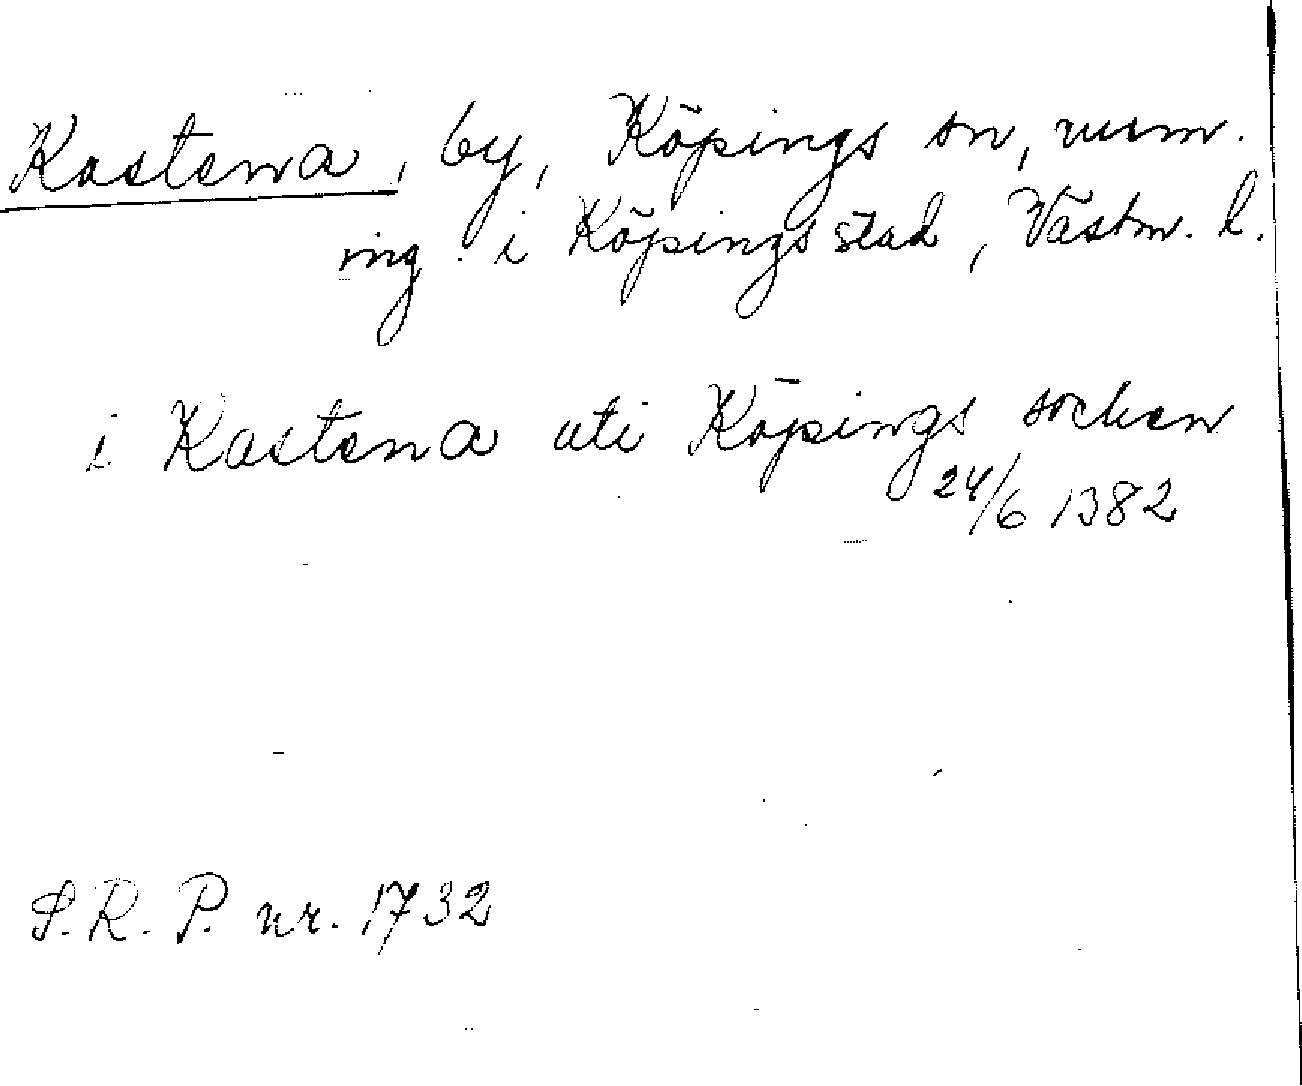 Kastena, by, Köpings sn, num.
ing. i Köpings stad, Västm. l.
i Kastena uti Köpings socken
24/6 1382
S.R.P. nr. 1732